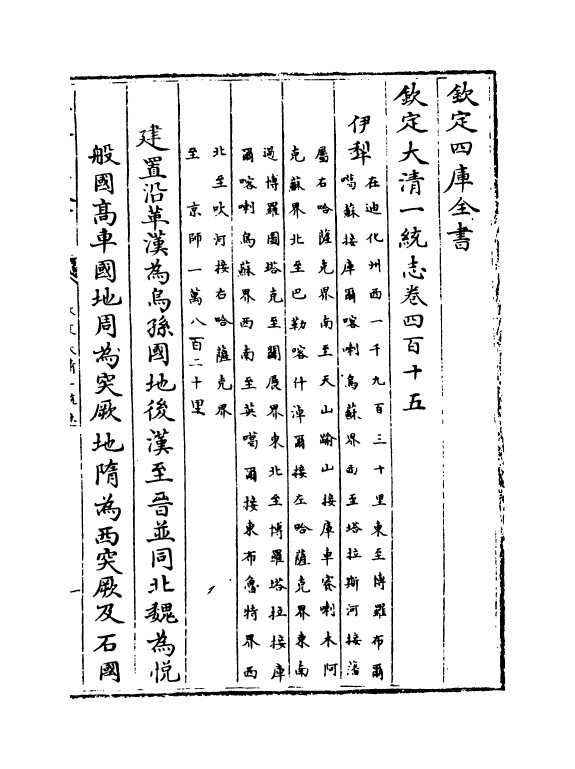 欽定四庫全書
欽定大清一統志卷四百十五
伊犁
在迪化州西一千九百三十里東至博羅布爾
噶蘇接庫爾喀喇烏蘇界西至塔拉斯河接藩
屬右哈薩克界南至天山踰山接庫車賽喇木阿
克蘇界北至巴勒喀什淖爾接左哈薩克界東南
過博羅圖塔克至闢展界東北至博羅塔拉接庫
爾喀喇烏蘇界西南至英噶爾接東布魯特界西
北至吹河接右哈薩克界
至 京師一萬八百二十里
建置沿革漢為烏孫國地後漢至晉並同北魏為悅
般國髙車國地周為突厥地隋為西突厥及石國
一